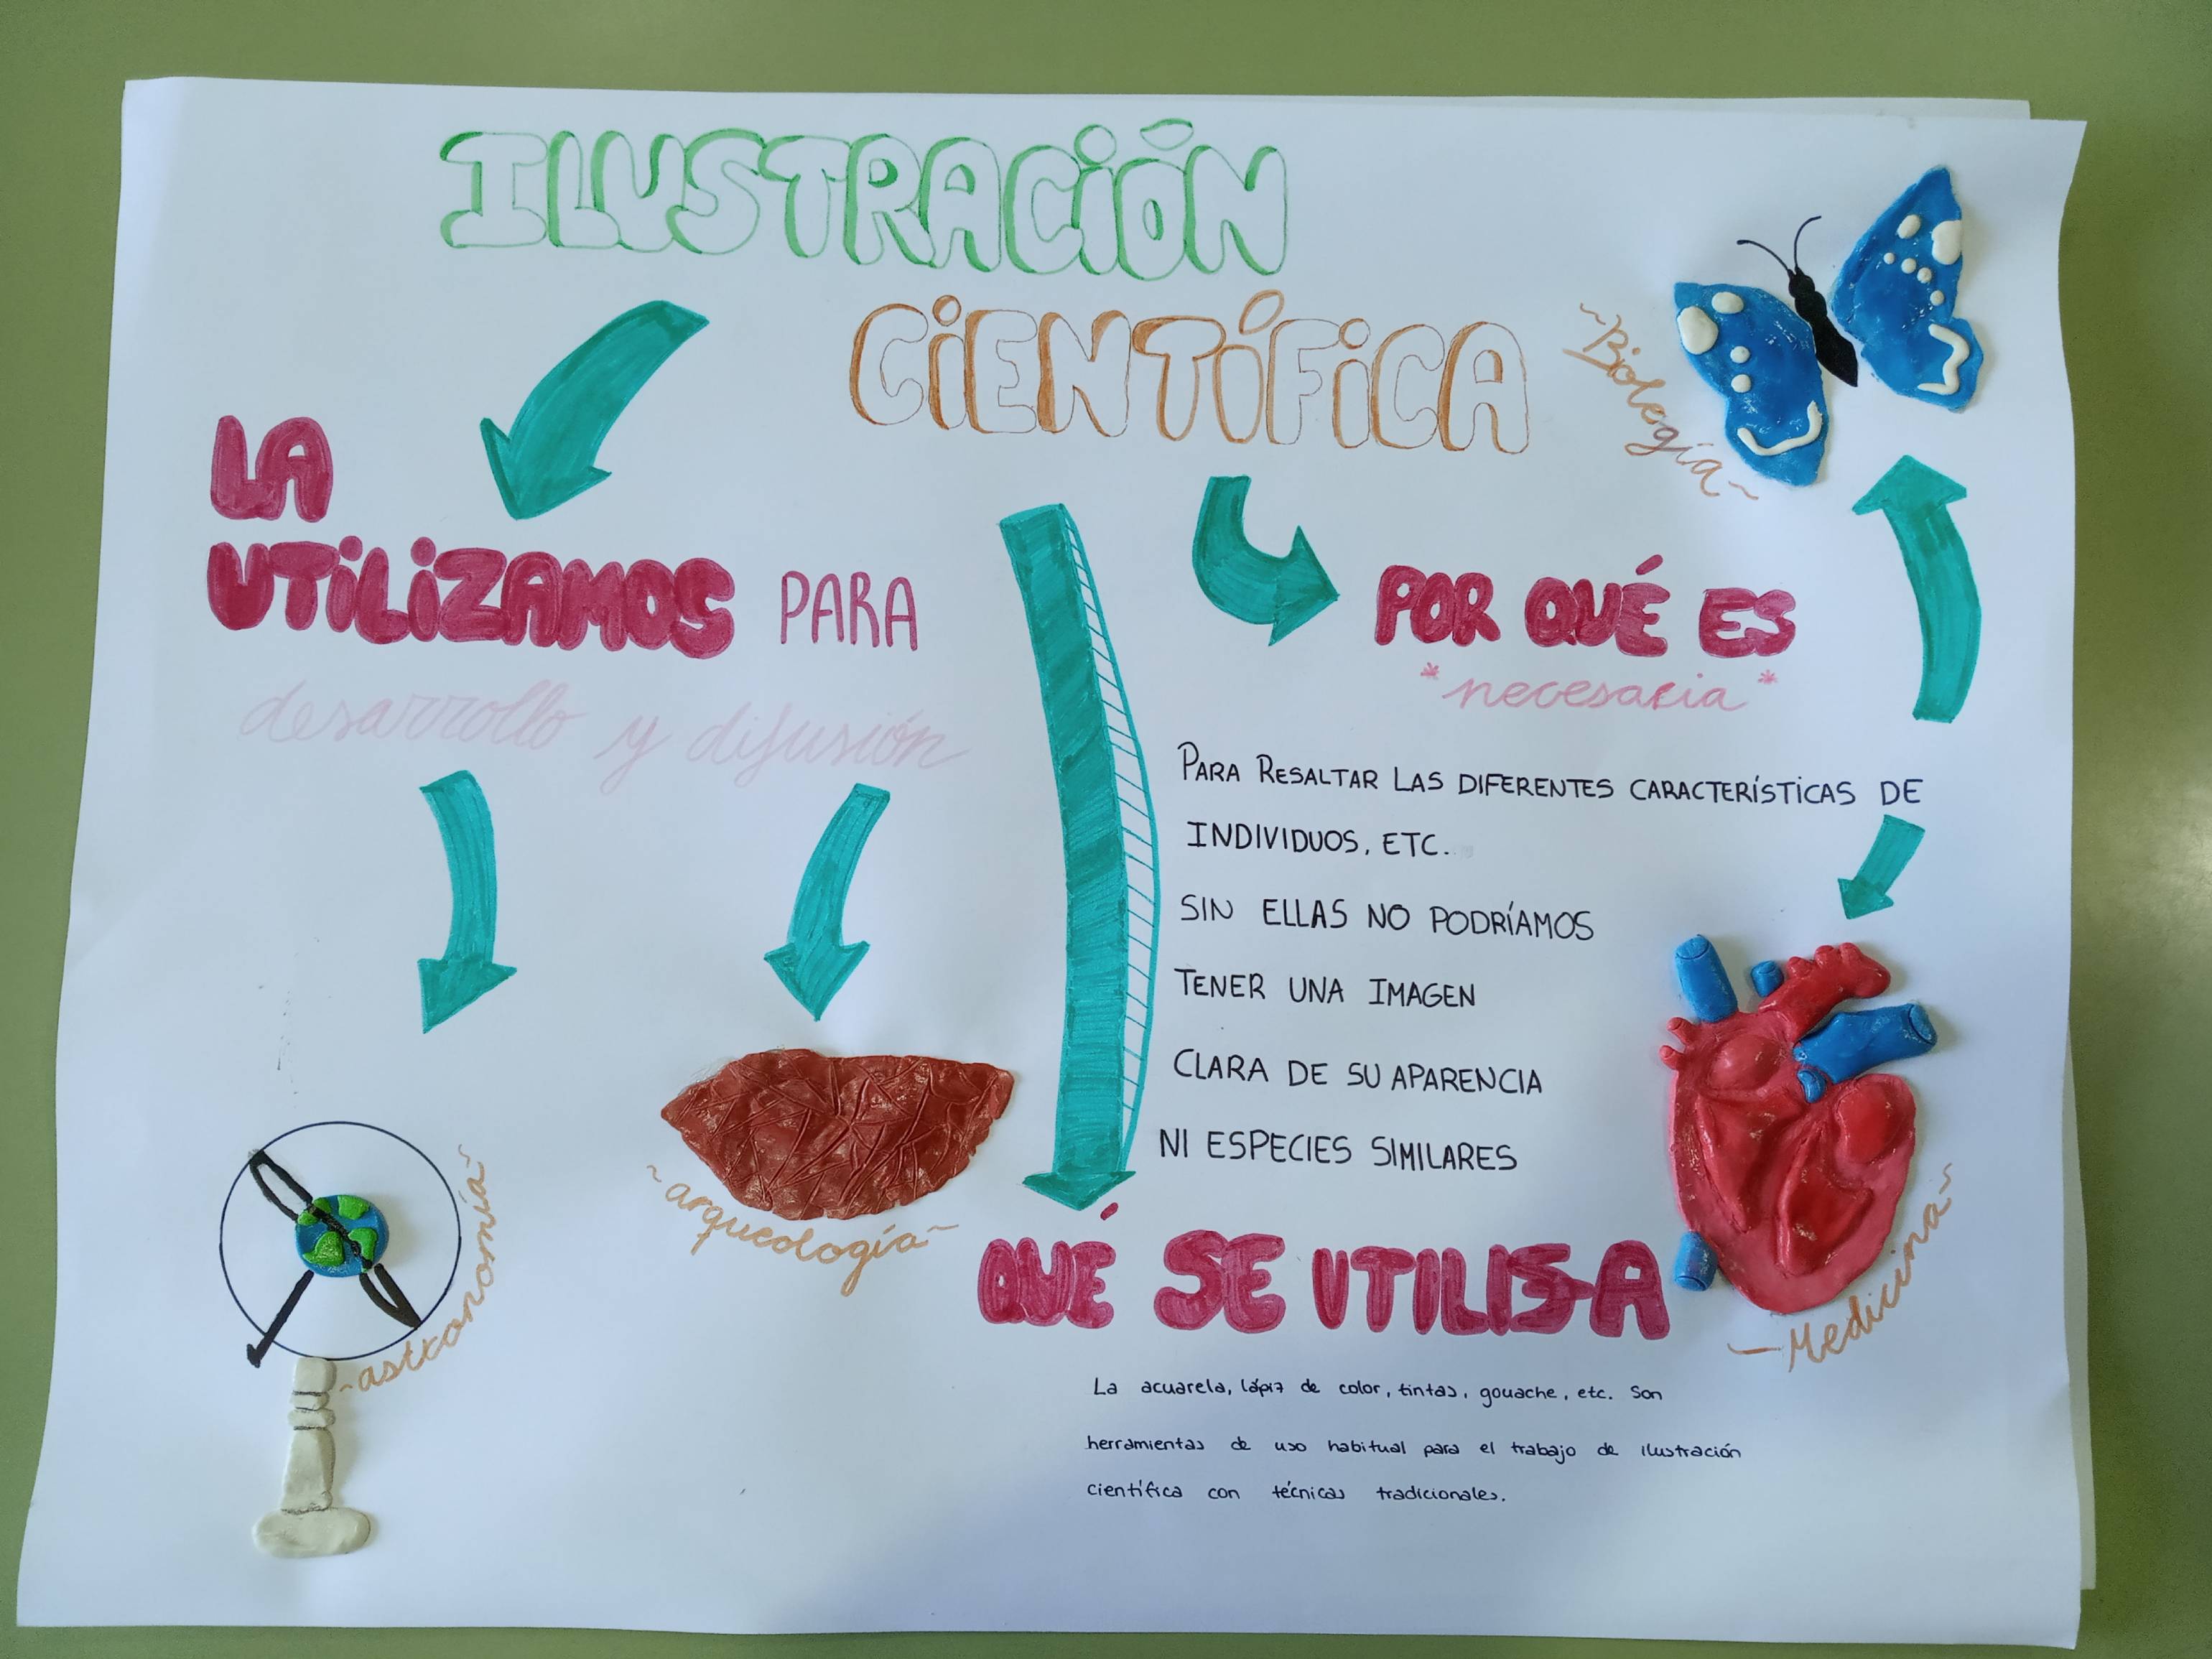 ILUSTRACIÓN
CIENTÍFICA
~Biología~
LA
UTILIZAMOS PARA
desarrollo y difusión
~astronomía~
~arqueología~
POR QUÉ ES
*necesaria*
PARA RESALTAR LAS DIFERENTES CARACTERÍSTICAS DE
INDIVIDUOS, ETC.
SIN ELLAS NO PODRÍAMOS
TENER UNA IMAGEN
CLARA DE SU APARENCIA
NI ESPECIES SIMILARES
~Medicina~
QUÉ SE UTILISA
La acuarela, lápiz de color, tintas, gouache, etc. Son
herramientas de uso habitual para el trabajo de ilustración
científica con técnicas tradicionales.